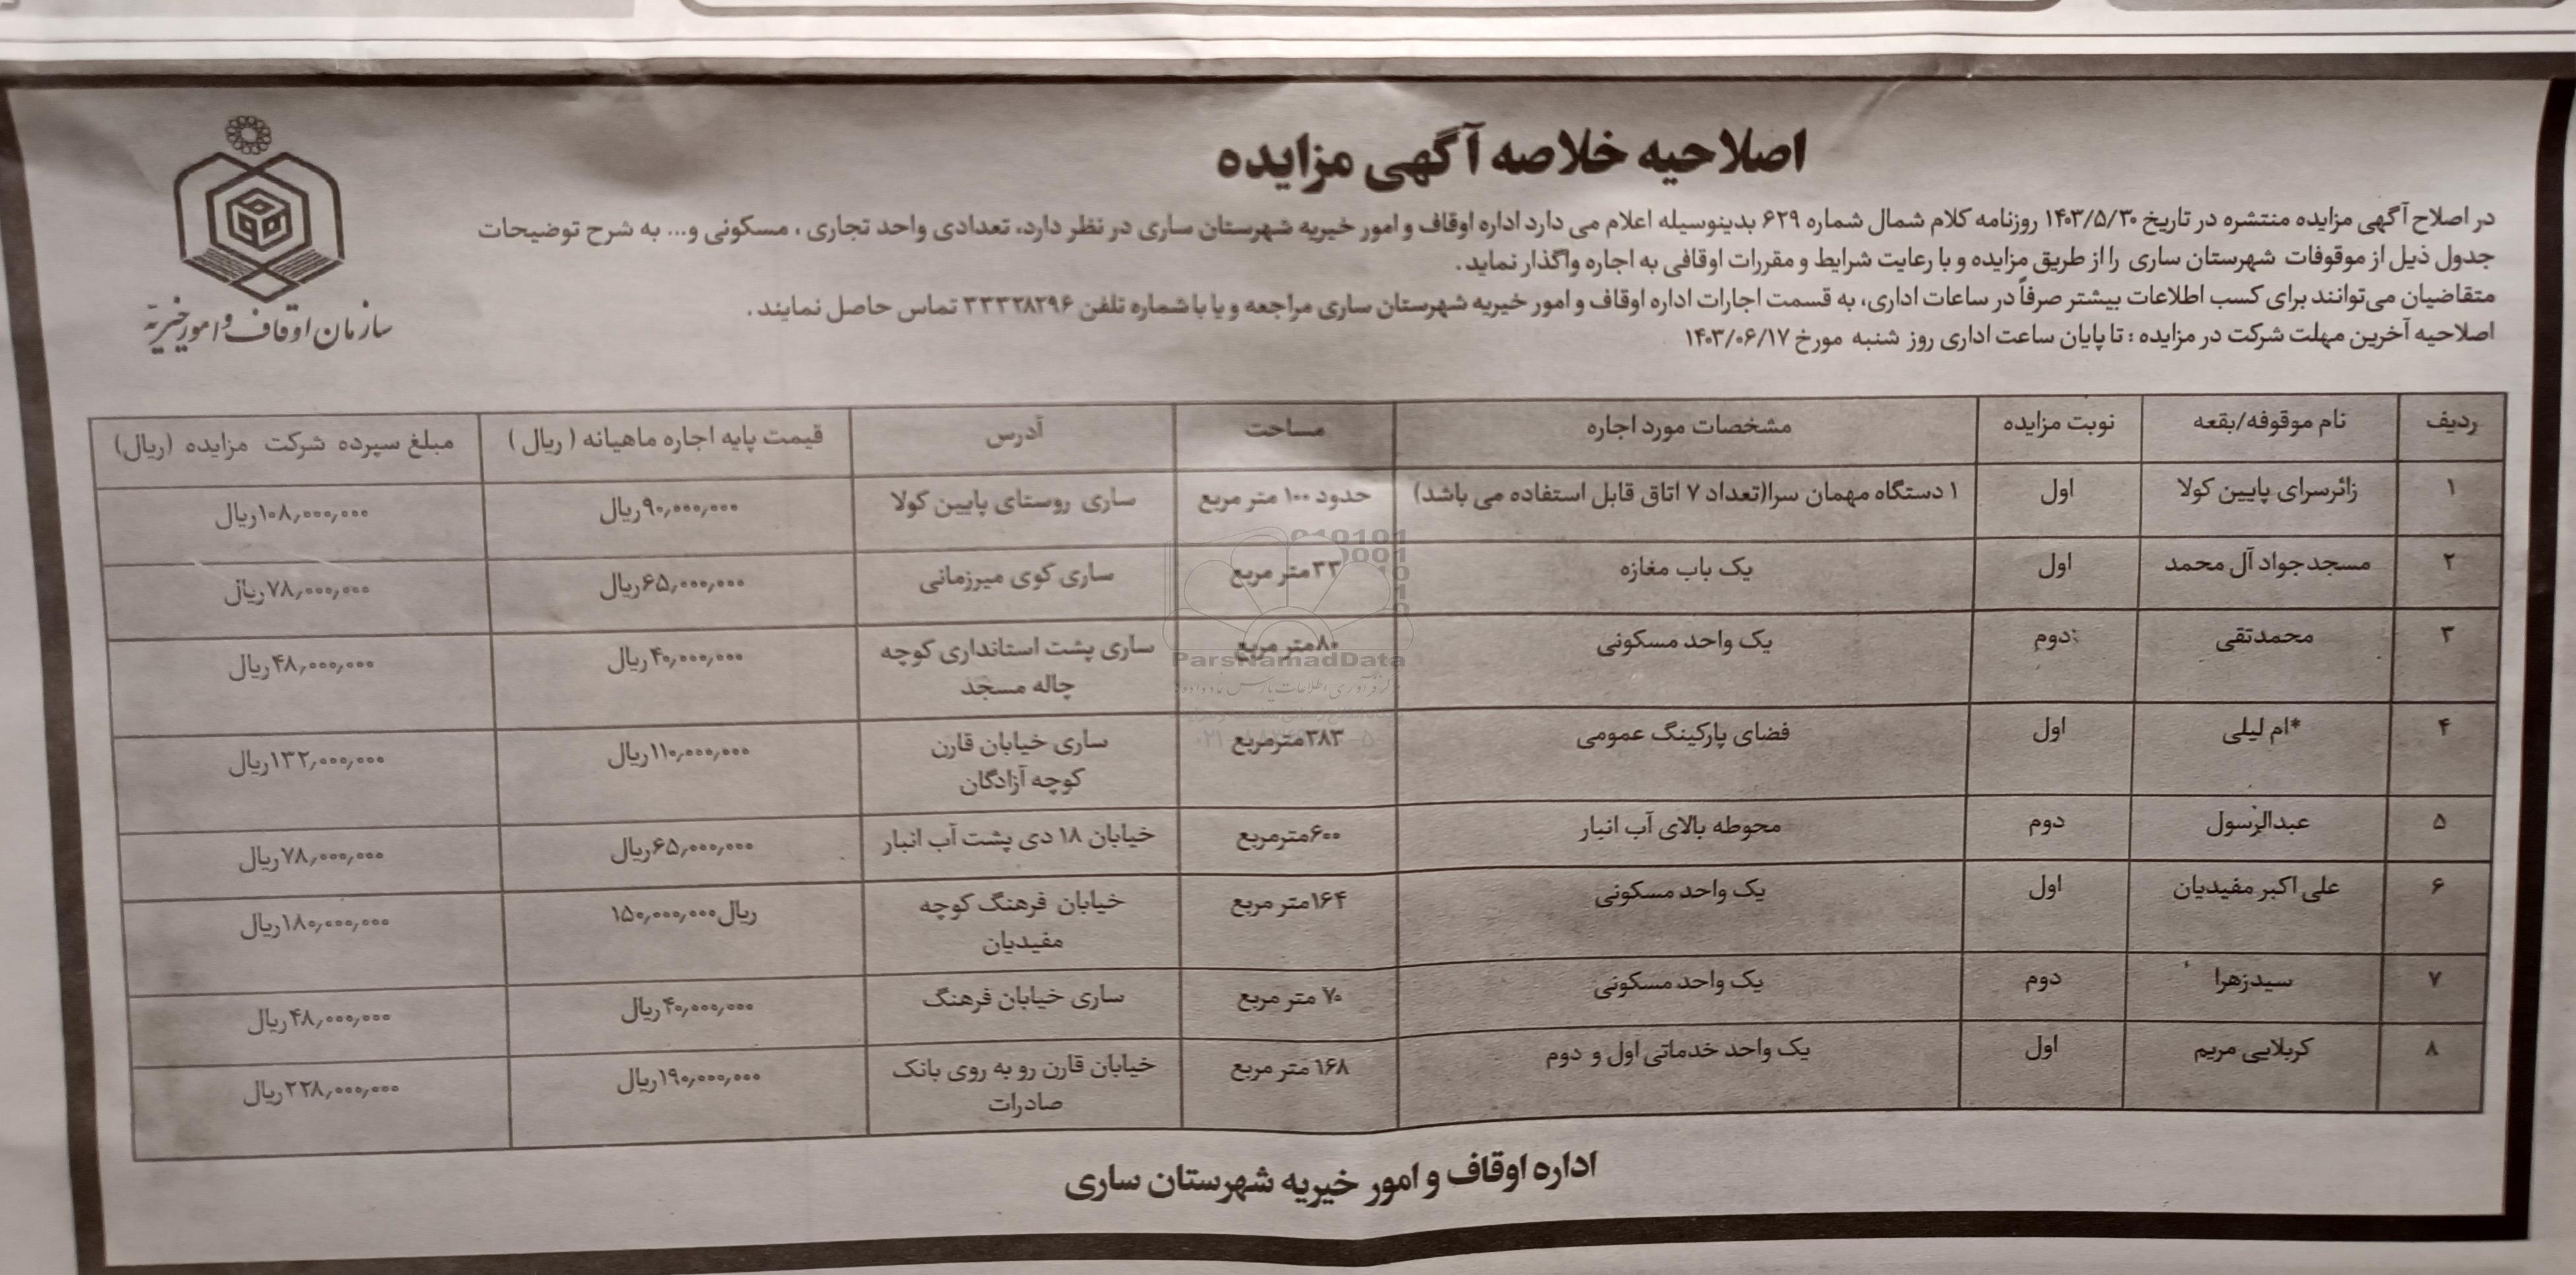 اصلاحیه خلاصه آگهی مزایده
سازمان اوقاف و امور خیریه
در اصلاح آگهی مزایده منتشره در تاریخ ۱۴۰۳/۵/۳۰ روزنامه کلام شمال شماره ۶۲۹ بدینوسیله اعلام می دارد اداره اوقاف و امور خیریه شهرستان ساری در نظر دارد، تعدادی واحد تجاری ، مسکونی و... به شرح توضیحات
جدول ذیل از موقوفات شهرستان ساری را از طریق مزایده و با رعایت شرایط و مقررات اوقافی به اجاره واگذار نماید.
متقاضیان می‌توانند برای کسب اطلاعات بیشتر صرفاً در ساعات اداری، به قسمت اجارات اداره اوقاف و امور خیریه شهرستان ساری مراجعه و یا با شماره تلفن ۳۳۳۲۸۲۹۶ تماس حاصل نمایند.
اصلاحیه آخرین مهلت شرکت در مزایده : تا پایان ساعت اداری روز شنبه مورخ ۱۴۰۳/۰۶/۱۷
ردیف نام موقوفه/بقعه نوبت مزایده مشخصات مورد اجاره مساحت آدرس قیمت پایه اجاره ماهیانه ( ریال ) مبلغ سپرده شرکت مزایده (ریال)
۱ زائرسرای پایین کولا اول ۱ دستگاه مهمان سرا(تعداد ۷ اتاق قابل استفاده می باشد) حدود ۱۰۰ متر مربع ساری روستای پایین کولا ۹۰٫۰۰۰٫۰۰۰ریال ۱۰۸٫۰۰۰٫۰۰۰ریال
۲ مسجد جواد آل محمد اول یک باب مغازه ۳۳متر مربع ساری کوی میرزمانی ۶۵٫۰۰۰٫۰۰۰ریال ۷۸٫۰۰۰٫۰۰۰ریال
۳ محمدتقی دوم یک واحد مسکونی ۸۰متر مربع ساری پشت استانداری کوچه ۴۰٫۰۰۰٫۰۰۰ریال ۴۸٫۰۰۰٫۰۰۰ریال
چاله مسجد
۴ *ام لیلی اول فضای پارکینگ عمومی ۳۸۳مترمربع ساری خیابان قارن ۱۱۰٫۰۰۰٫۰۰۰ریال ۱۳۲٫۰۰۰٫۰۰۰ریال
کوچه آزادگان
۵ عبدالرسول دوم محوطه بالای آب انبار ۶۰۰مترمربع خیابان ۱۸ دی پشت آب انبار ۶۵٫۰۰۰٫۰۰۰ریال ۷۸٫۰۰۰٫۰۰۰ریال
۶ علی اکبر مفیدیان اول یک واحد مسکونی ۱۶۴متر مربع خیابان فرهنگ کوچه ریال۱۵۰٫۰۰۰٫۰۰۰ ۱۸۰٫۰۰۰٫۰۰۰ریال
مفیدیان
۷ سیدزهرا دوم یک واحد مسکونی ۷۰ متر مربع ساری خیابان فرهنگ ۴۰٫۰۰۰٫۰۰۰ریال ۴۸٫۰۰۰٫۰۰۰ریال
۸ کربلایی مریم اول یک واحد خدماتی اول و دوم ۱۶۸ متر مربع خیابان قارن رو به روی بانک ۱۹۰٫۰۰۰٫۰۰۰ریال ۲۲۸٫۰۰۰٫۰۰۰ریال
صادرات
ParsNamadData
اداره اوقاف و امور خیریه شهرستان ساری